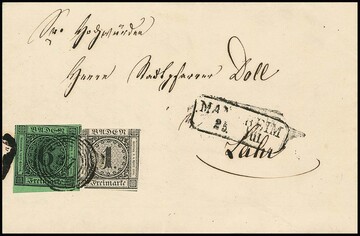 Sr. Hochwürden
Herrn Stadtpfarrer Doll
MANNHEIM
25. Jul.
Lahr
BADEN
Freimarke
BADEN
1
Freimarke